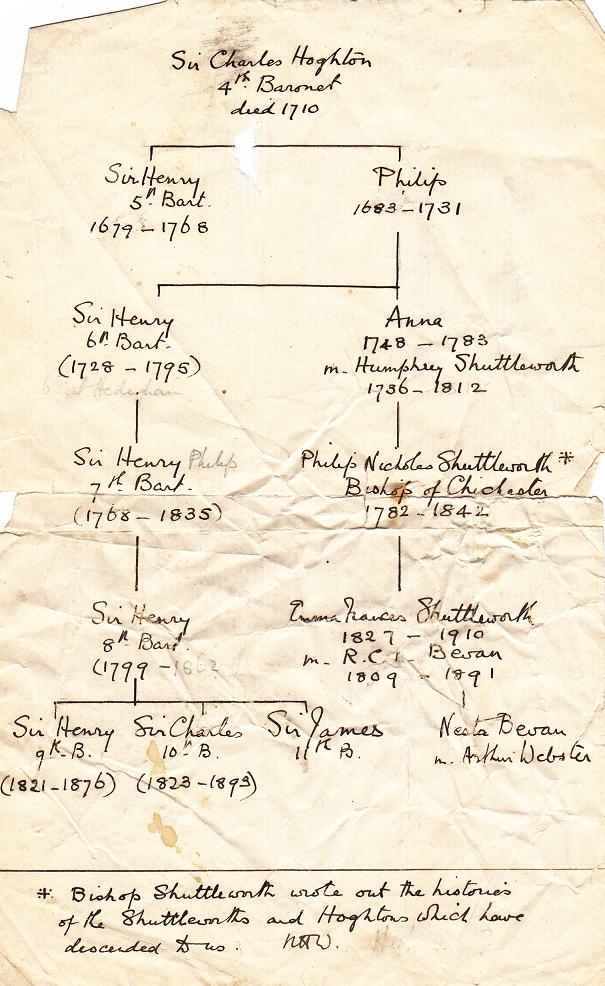 Sir Charles Hoghton
4th Baronet
died 1710
Sir Henry
5th Bart.
1679 – 1768
Philip
1683 – 1731
Sir Henry
6th Bart.
(1728 – 1795)
Anna
1748 – 1783
m. Humphrey Shuttleworth
1736 – 1812
Sir Henry Philip
7th Bart.
(1768 – 1835)
Philip Nicholas Shuttleworth *
Bishop of Chichester
1782 – 1842
Sir Henry
8th Bart.
(1799 – 1862
Emma Frances Shuttleworth
1827 – 1910
m. R.C.L. Bevan
1809 – 1891
Sir Henry
9th B.
(1821–1876)
Sir Charles
10th B.
(1823–1893)
Sir James
11th B.
Neata Bevan
m. Arthur Webster
* Bishop Shuttleworth wrote out the histories
of the Shuttleworths and Hoghtons which have
descended to us.